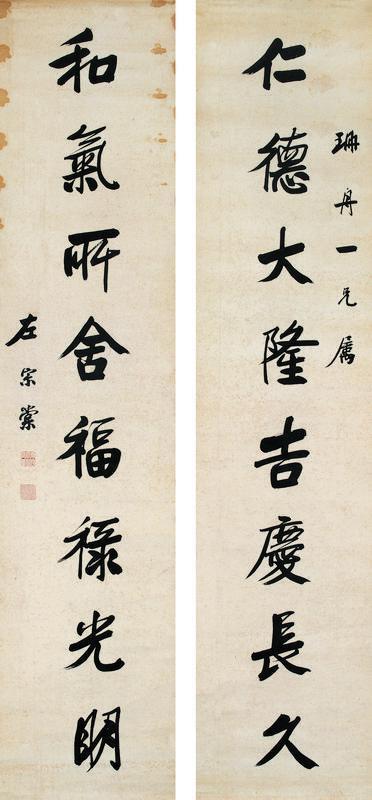 珊舟一兄屬
仁德大隆吉慶長久
和氣所舍福祿光明
左宗棠